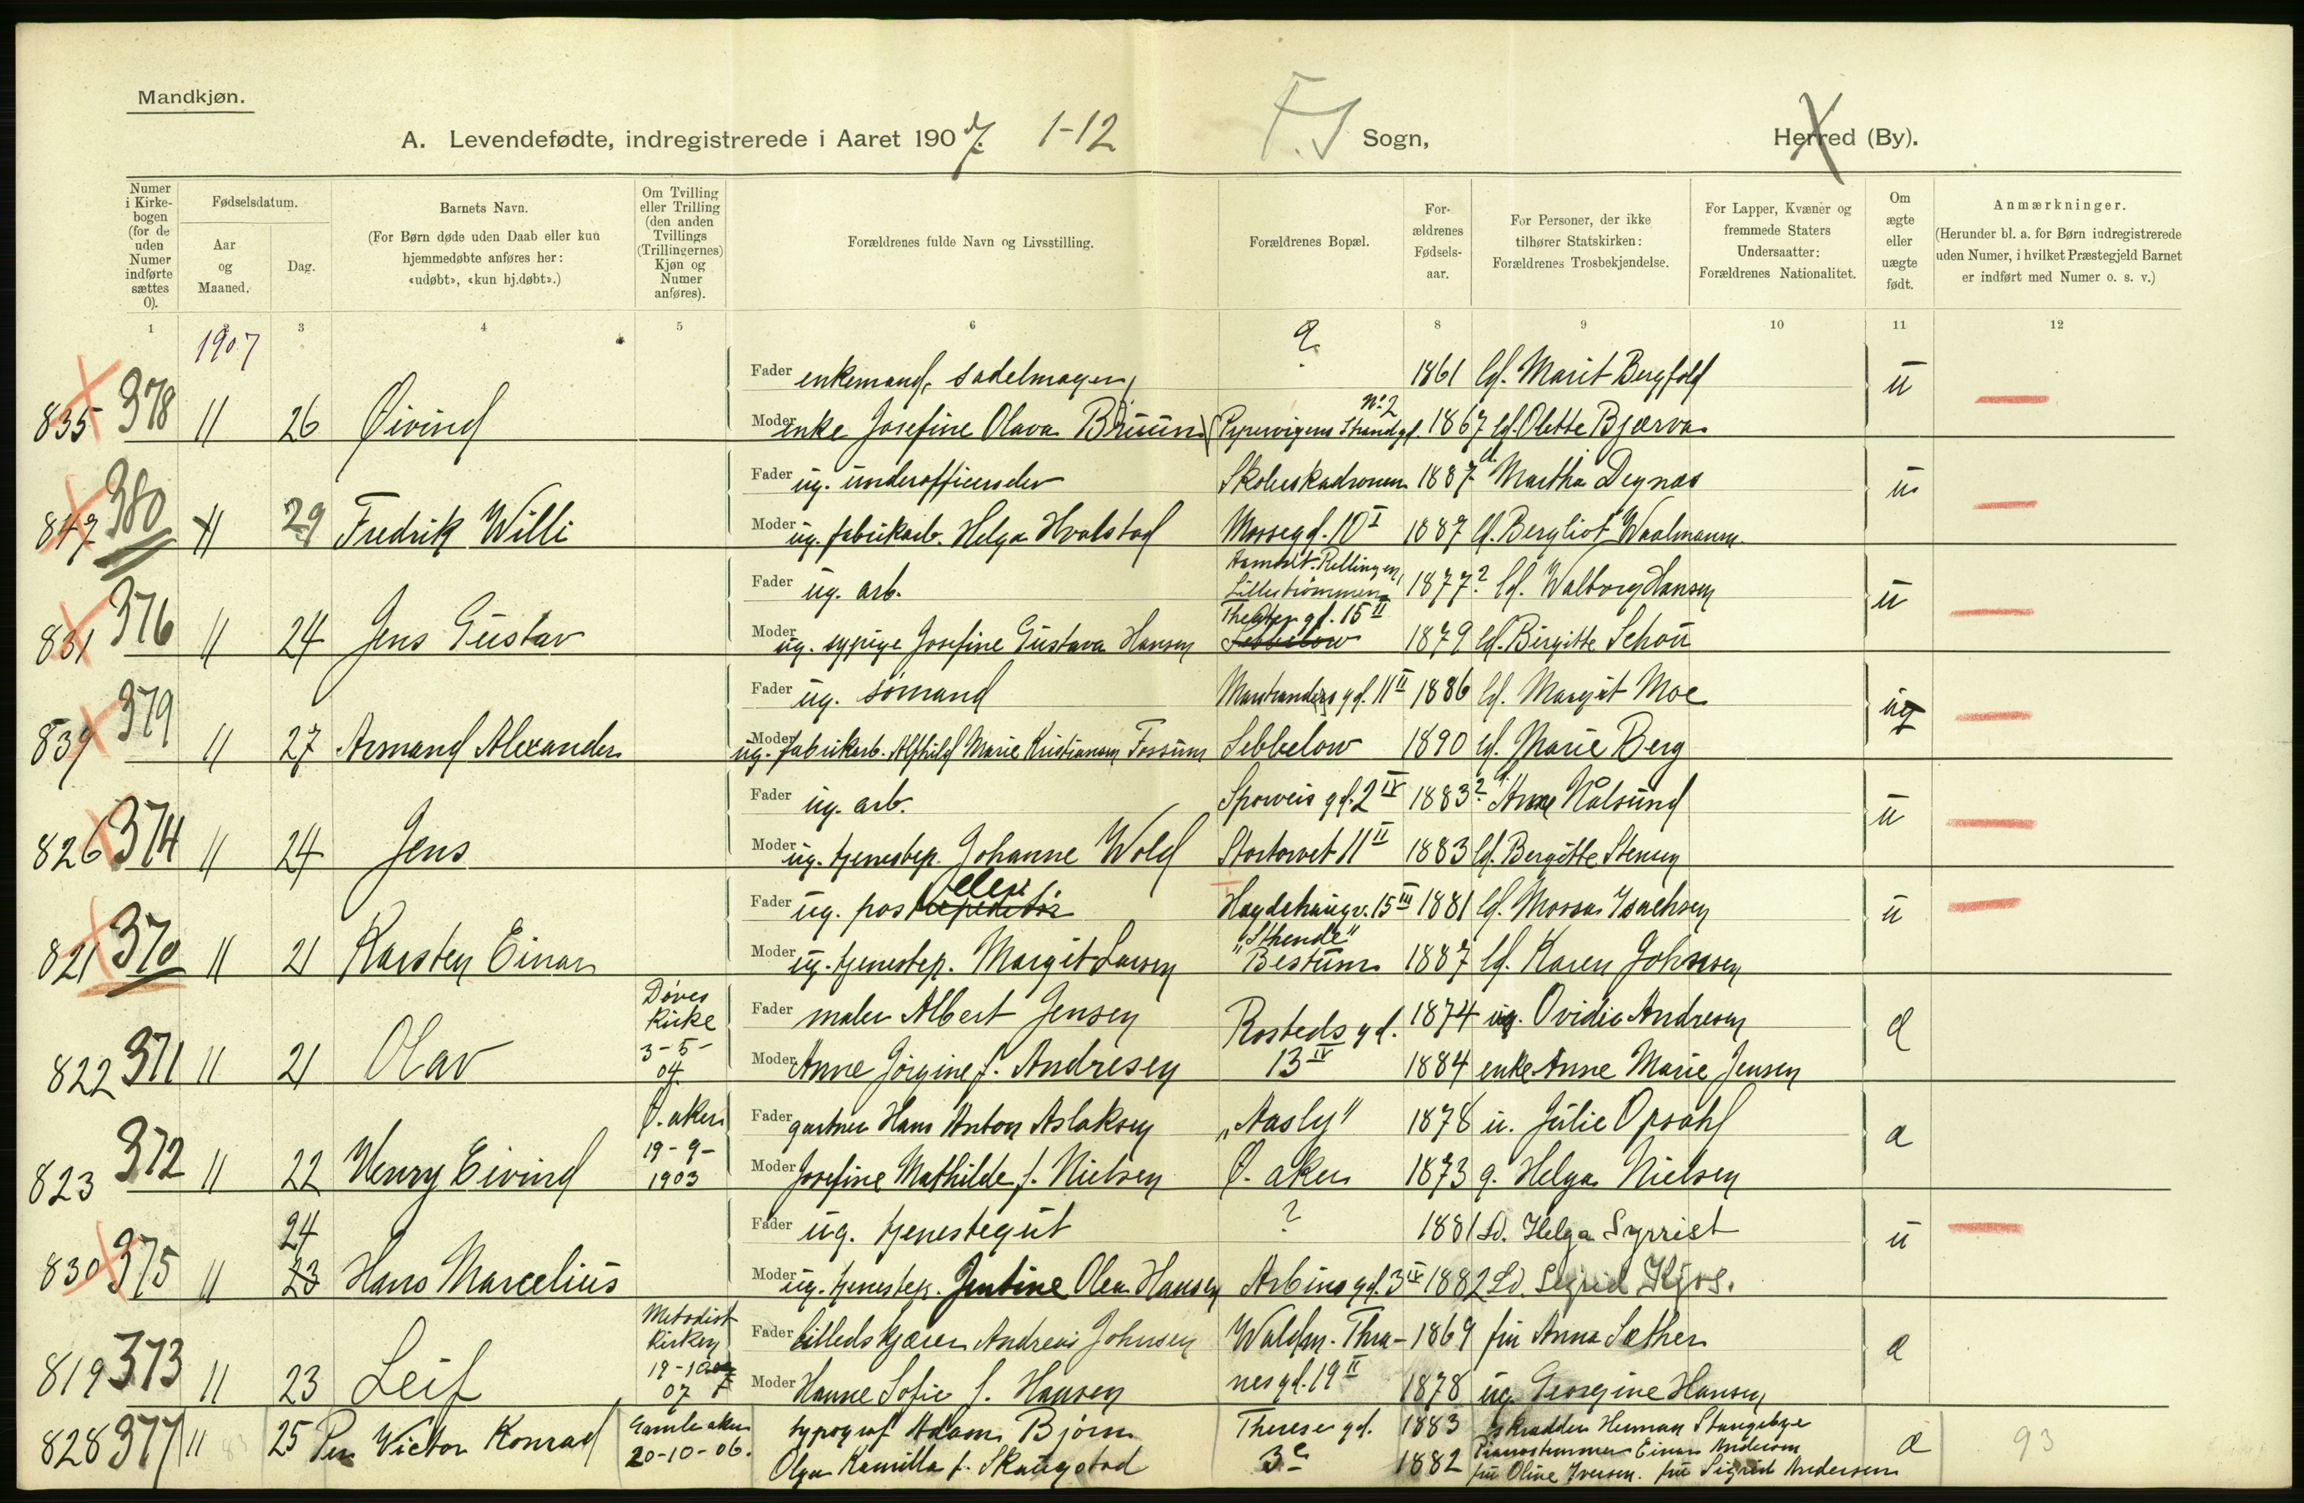 Mandkjøn.
A. Levendefødte, indregistrerede i Aaret 1907. 1-12 F.S Sogn, Herred (By).
Numer i Kirkebogen (for de uden Numer indførte sættes 0).
Fødselsdatum.
Aar og Maaned.
Dag.
Barnets Navn.
(For Børn døde uden Daab eller kun hjemmedøbte anføres her: «udøbt», «kun hj.døbt».)
Om Tvilling eller Trilling (den anden Tvillings (Trillingernes) Kjøn og Numer anføres).
Forældrenes fulde Navn og Livsstilling.
Forældrenes Bopæl.
Forældrenes Fødselsaar.
For Personer, der ikke tilhører Statskirken: Forældrenes Trosbekjendelse.
For Lapper, Kvæner og fremmede Staters Undersaatter: Forældrenes Nationalitet.
Om ægte eller uægte født.
Anmærkninger.
(Herunder bl. a. for Børn indregistrerede uden Numer, i hvilket Præstegjeld Barnet er indført med Numer o. s. v.)
1 3 4 5 6 8 9 10 11 12
1907
Fader enkemand, sadelmager 1861 Marit Bergfold u
835 378 11 26 Øivind Moder enke Josefine Olava Bruun Pipervigens Strandgd. No. 2 1867 Olette Bjærva
Fader ug. underofficerselev Skoleeskadronen 1887 Martha Degnæs u
847 380 11 29 Fredrik Willi Moder ug. fabrikarb. Helga Hvalstad Mossegd. 10 I 1887 Bergliot Waalmann
Fader ug. arb. Rellingen, Lillestrømmen 1877? Walborg Hansen u
831 376 11 24 Jens Gustav Moder ug. sypige Josefine Gustava Hansen Theatergd. 15 II Sebbelow 1879 Birgitte Schou
Fader ug. sømand Markandersgd. 11 II 1886 Margit Moe ug
839 379 11 27 Armand Alexander Moder ug. fabrikarb. Alfhild Marie Kristiansen Fossum Sebbelow 1890 Marie Berg
Fader ug. arb. Sporveisgd. 2 IV 1883? Anne Kalsund u
826 374 11 24 Jens Moder ug. tjenestep. Johanne Wold Stortorvet 11 II 1883 Bergitte Stensen
Fader ug. post elev Hægdehaugv. 15 III 1881 Mossa Isachsen u
821 370 11 21 Karsten Einar Moder ug. tjenestep. Margit Larsen Bestum 1887 Karen Johnsen
Døves Kirke 3-5-04 Fader maler Albert Jensen Rostedsgd. 13 IV 1874 ug. Ovidie Andresen a
822 371 11 21 Olav Moder Anne Jørgine f. Andresen 1884 enke Anne Marie Jensen
Ø. aker 19-9-1903 Fader gartner Hans Anton Aslaksen „Aasly" 1878 u. Julie Opsahl a
823 372 11 22 Henry Eivind Moder Josefine Mathilde f. Nielsen Ø. aker 1873 g. Helga Nielsen
24 Fader ug. tjenestegut ? 1881 Helga Syrrist u
830 375 11 23 Hans Marcelius Moder ug. tjenestep. Jentine Olea Hansen Arbinsgd. 3 IV 1882 Sigrid Kjos.
Metodist kirken 19-10 07 Fader billedskjærer Andreas Johnsen Waldm. Thranesgd. 19 II 1869 fru Anna Sæther a
819 373 11 23 Leif Moder Hanne Sofie f. Hansen 1878 ug. Georgine Hansen
828 377 11 25 Per Victor Konrad Gamle aker 20-10-06. typograf Adam Bjørn Theresegd. 3 c 1883 skrædder Herman Stangebye a 93
Olga Kamilla f. Skaugstad 1882 Pianostemmer Einar Andersen
fru Oline Iversen. fru Sigrid Andersen